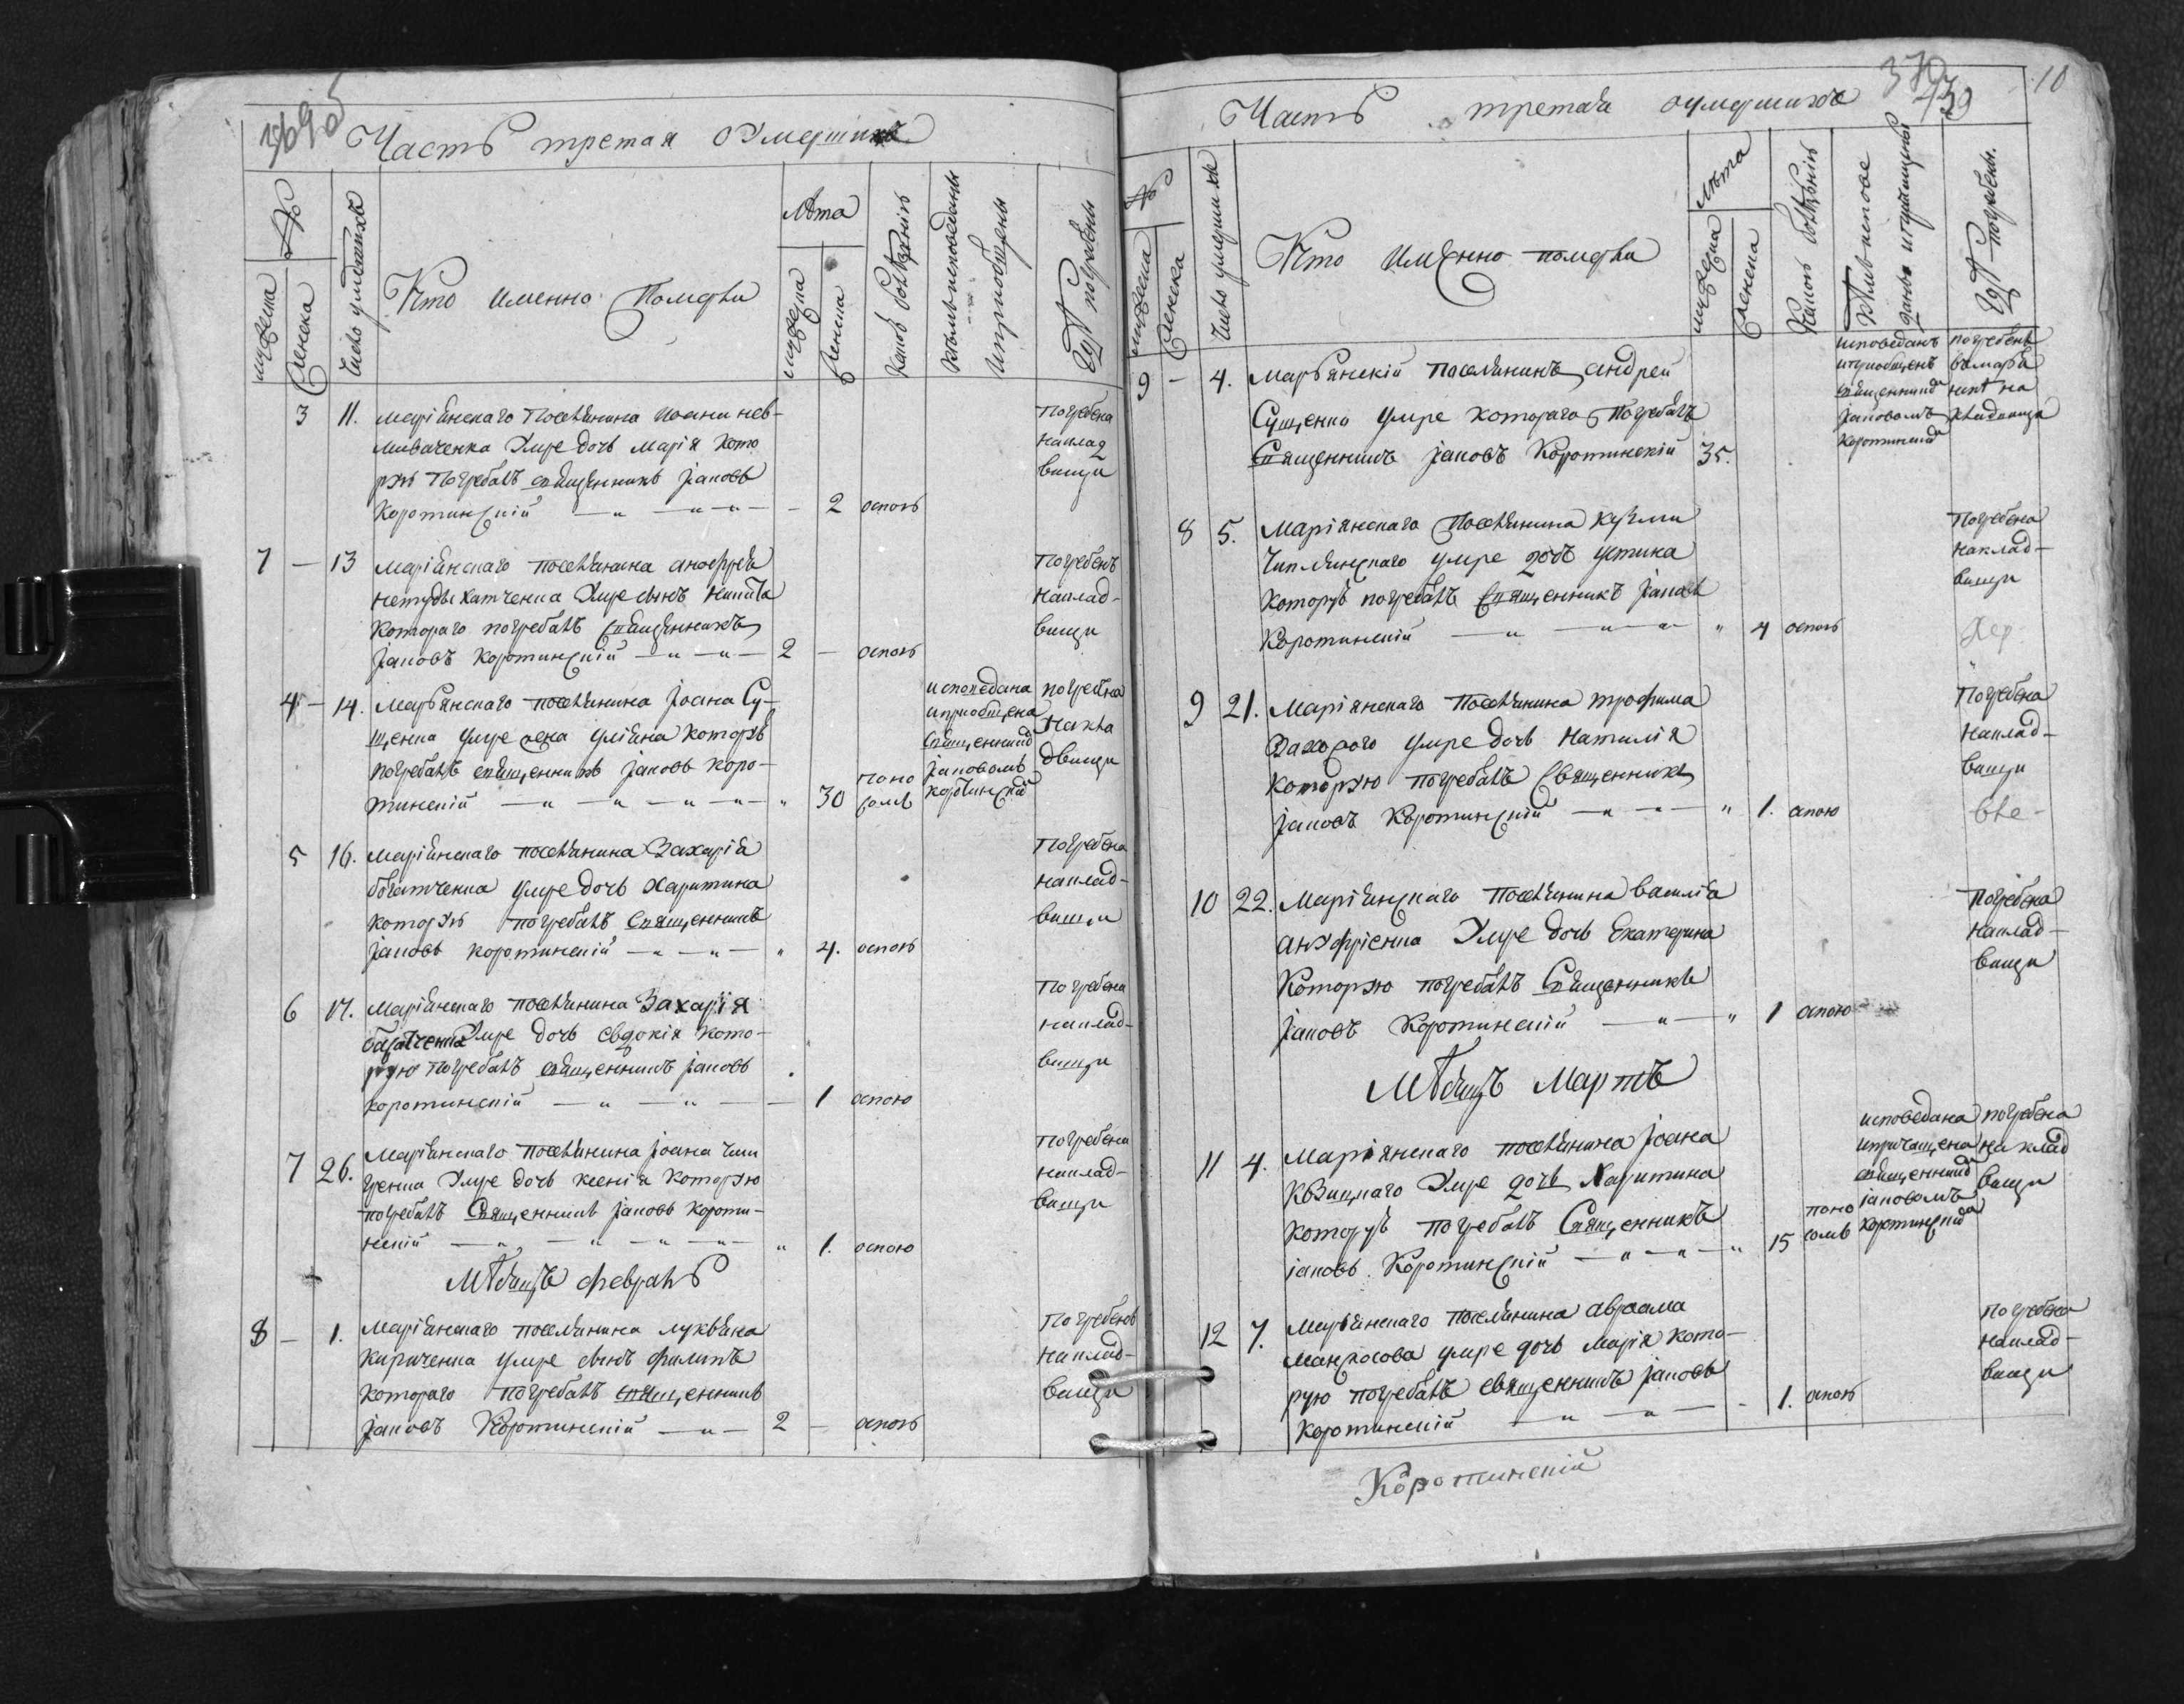 369
Часть третая оумершихъ
№
Лѣта
мужеска
женска
Число умершихъ
Кто именно помѣръ
мужеска
женска
Какою болѣзнію
Кѣмъ исповеданы
и приобщены
Гдѣ погребены
3 11. Маріянскаго Поселянина
умре дочь Марія кото
рую погребалъ священникъ Іаковъ
Коротинскій — 2 оспою
Погребена
наклад
вищи
7 — 13 Маріянскаго поселянина анофрія
умре сынъ Никита
котораго погребалъ священникъ
Іаковъ Коротинскій — " — " — 2 — оспою
Погребенъ
наклад-
вищи
4 — 14. Марьянскаго поселянина Іоана Су-
щенка умре жена уліяна которую
погребалъ священникъ Іаковъ Коро-
тинскій — " — " — " — " 30
исповедана
иприобщена
священником
Іаковомъ
Коротинским
погребена
Накла
двищи
5 16. Маріянскаго поселянина Захарія
богатченка умре дочь Харитина
которую погребалъ Священникъ
Іаковъ Коротинскій — " — " — " 4. оспою
Погребена
наклад-
вищи
6 17. Маріянскаго поселянина Захарія
багатченка умре дочь евдокія кото-
рую погребалъ священникъ Іаковъ
Коротинскій — " — " — 1 оспою
Погребена
наклад-
вищи
7 26. Маріянскаго поселянина Іоана
умре дочь ксенія которую
погребалъ Священникъ Іаковъ Короти-
нскій — " — " — " — " 1. оспою
Погребена
наклад-
вищи
Мѣсяцъ февраль
8 — 1. Маріянскаго поселянина лукьяна
Кириченка умре сынъ филипъ
котораго погребалъ священникъ
Іаковъ Коротинскій — " — 2 — оспою
Погребенъ
наклад-
вищи
370
439
10
Часть третая оумершихъ
№
Лѣта
мужеска
женска
Число умершихъ
Кто именно помѣръ
мужеска
женска
Какою болѣзнію
Гдѣ погребены.
9 — 4. Марьянскій поселянинъ андрей
Сущенко умре котораго погребалъ
Священникъ Іаковъ Коротинскій 35.
исповеданъ
иприобщенъ
священником
Іаковомъ
Коротинским
погребенъ
вмарья
на
кладвищи
8 5. Маріянскаго Поселянина Кузми
умре дочь устина
которую погребалъ Священникъ Іаковъ
Коротинскій — " — " — " " 4 оспою
Погребена
наклад-
вищи
Хер
9 21. Маріянскаго Поселянина трофима
умре дочь Наталія
которую погребалъ Священникъ
Іаковъ Коротинскій — " — " — " 1. оспою
Погребена
наклад-
вищи
10 22. Маріянскаго Поселянина василія
умре дочь Екатерина
Которую погребалъ Священникъ
Іаковъ Коротинскій — " — " 1 оспою
Погребена
наклад-
вищи
Мѣсяцъ Мартъ
11 4. Маріянскаго поселянина Іоана
умре дочь Харитина
которую погребалъ Священникъ
Іаковъ Коротинскій — " — " — " 15
исповедана
ипричащена
священником
Іаковомъ
Коротинским
погребена
на клад
вищи
12 7. Марьянскаго поселянина авраама
умре дочь Марія кото-
рую погребалъ священникъ Іаковъ
Коротинскій — " — " — 1. оспою
Погребена
наклад-
вищи
Коротинскій